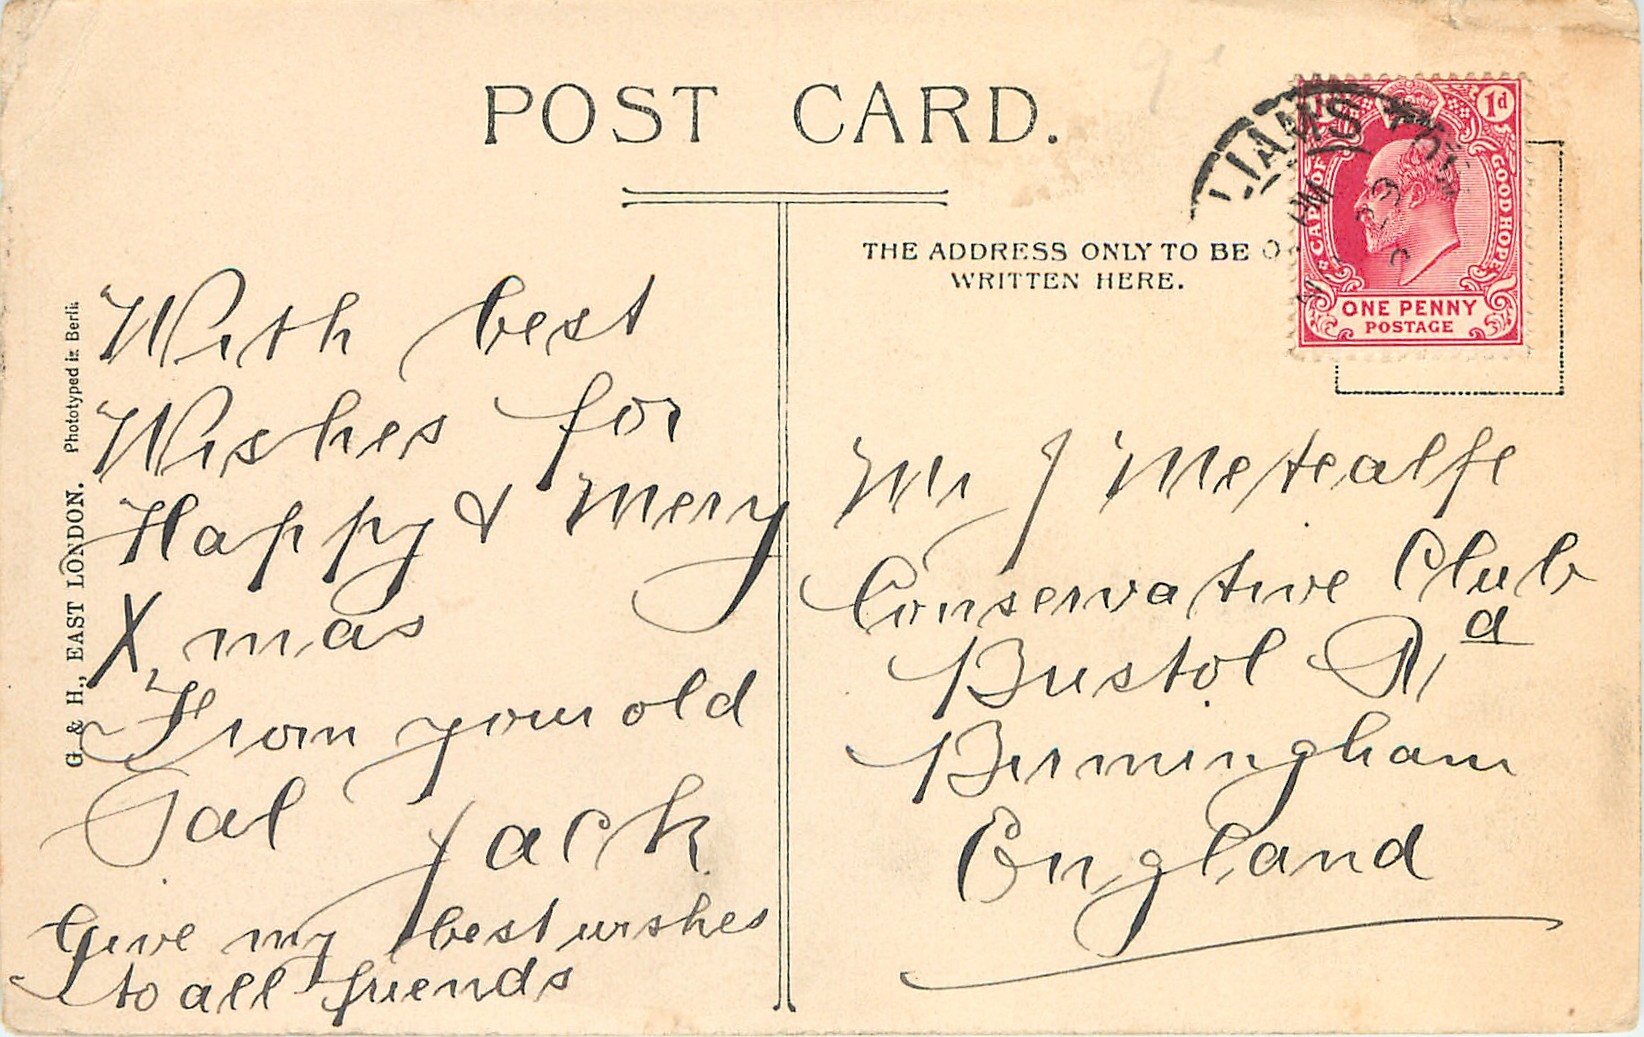 POST CARD.
THE ADDRESS ONLY TO BE
WRITTEN HERE.
1d
CAPE OF GOOD HOPE
ONE PENNY
POSTAGE
LIAMS
23
G. & H., EAST LONDON. Phototyped in Berlin
With best
Wishes for
Happy & Mery
Xmas
From your old
Pal Jack
Give my best wishes
to all friends
Mr J Metcalfe
Conservative Club
Bristol Rd
Birmingham
England